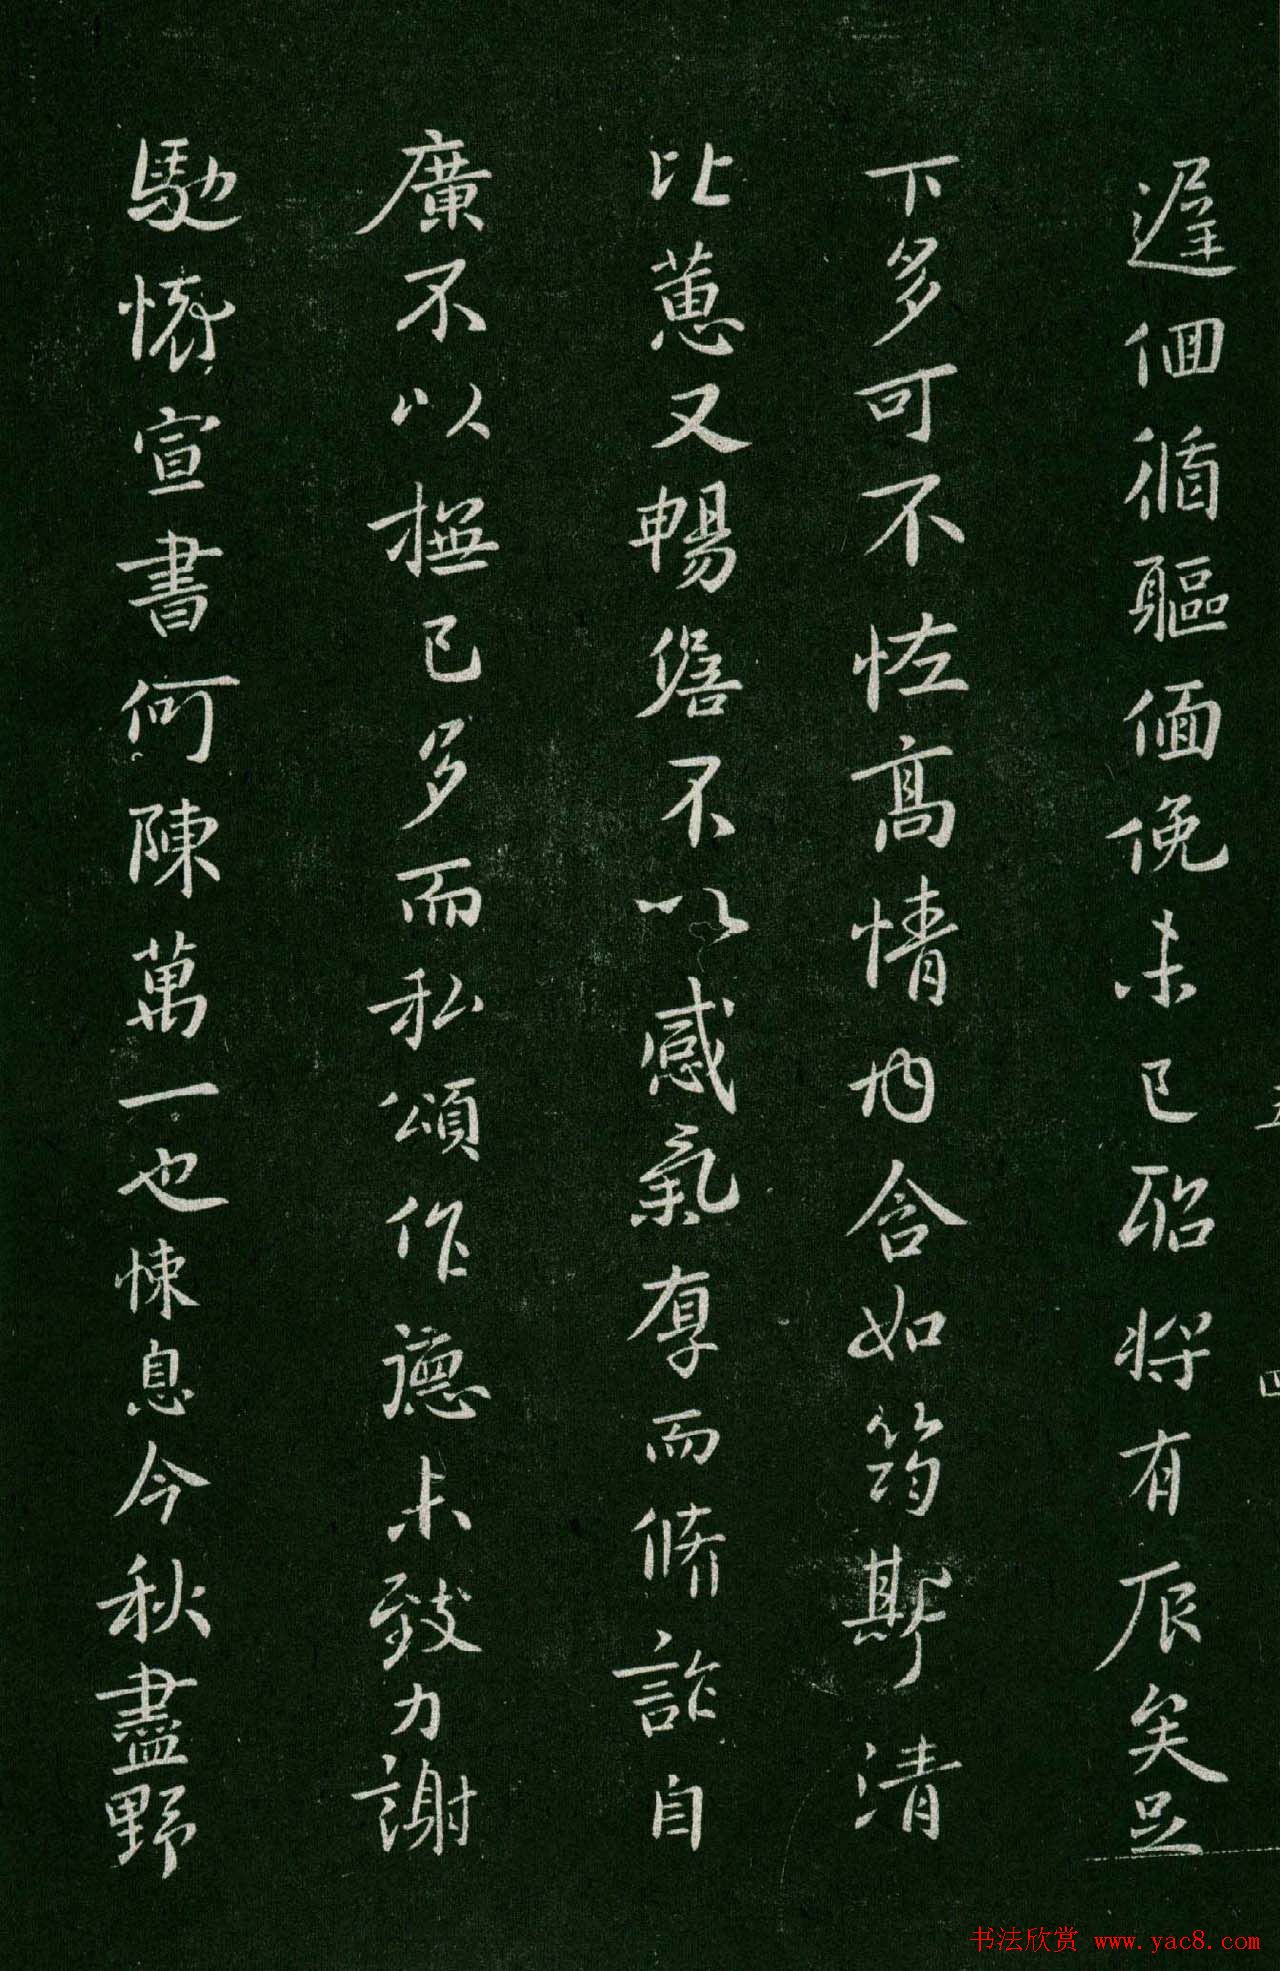 遲佪循軀偭俛未已聊將有辰矣足
下多可不怪高情内含如筠斯清
比蕙又暢儋不以感氣厚而脩詐自
廣不以撫已多而私頌作德未致力謝
馳懷宣書何陳萬一也悚息今秋盡野
书法欣赏 www.yac8.com